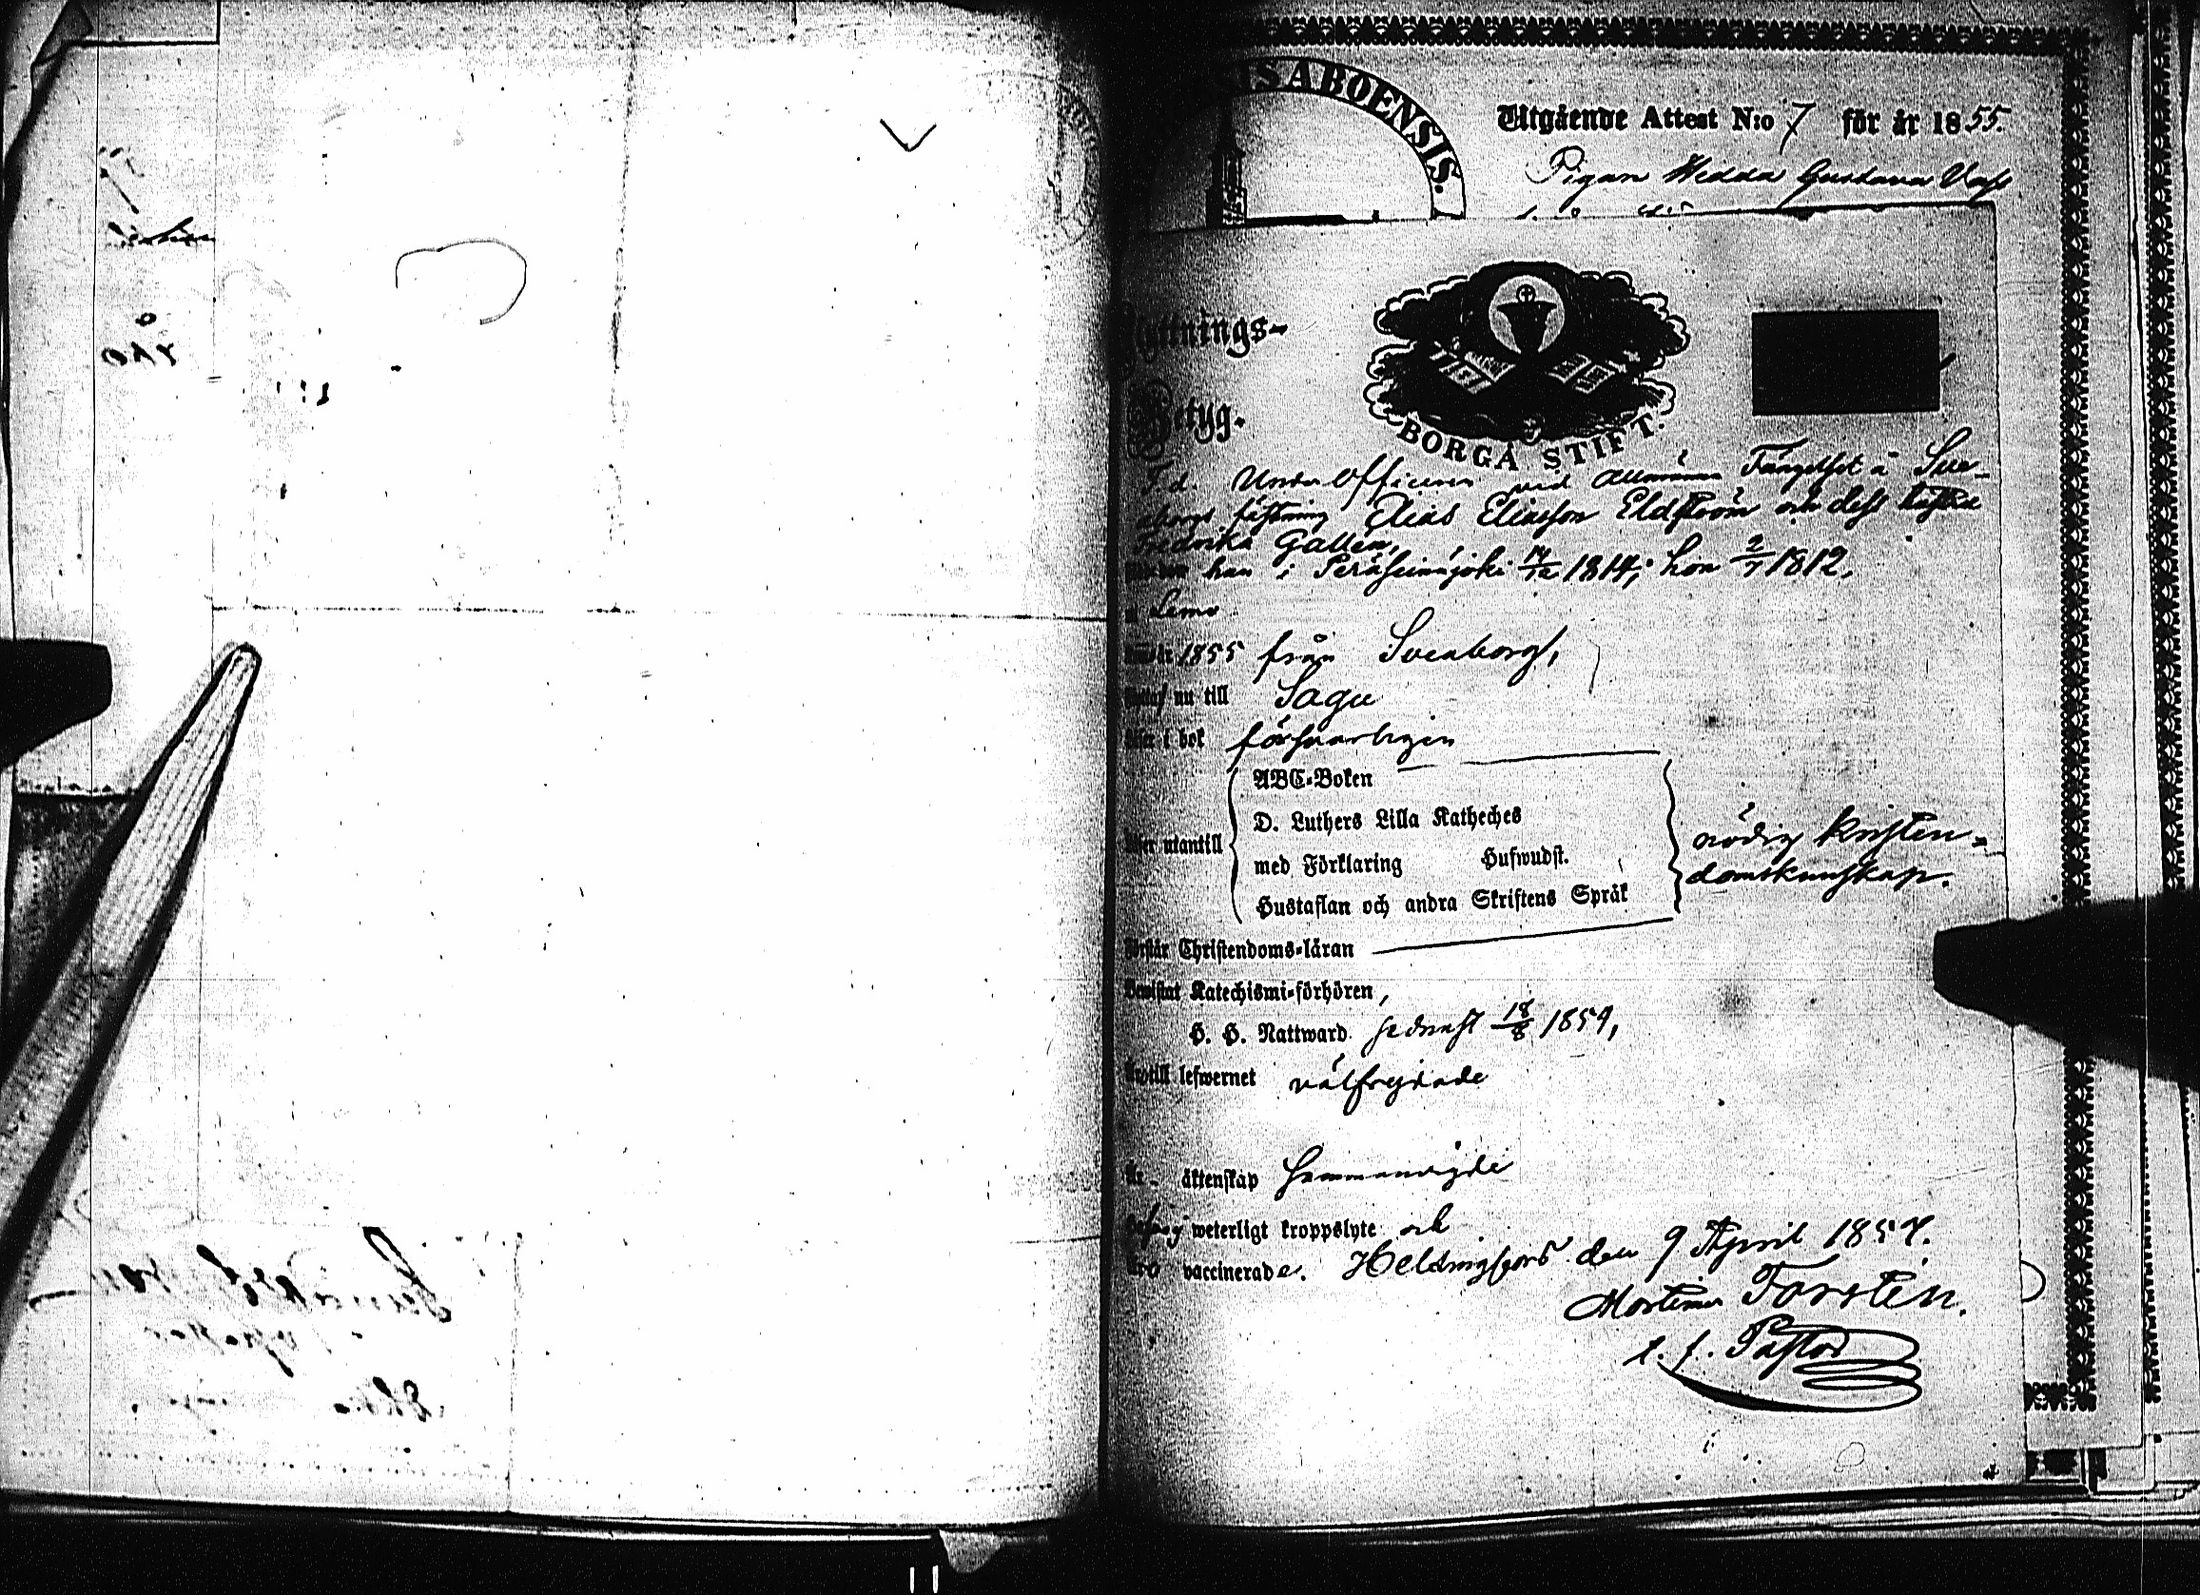 SABOENSIS.
Utgående Attest N:o 7 för år 1855.
Pigan Hedda Gustava
Flyttnings-
Betyg.
BORGÅ STIFT.
F. d. Underofficeren vid allmänna Fängelset å Svea-
borgs fästning Elias Eliasson Eldström och dess hustru
Fredrika Gallén,
han i Peräseinäjoki 14/12 1814; hon 2/7 1812,
i Lemo
1855 från Sveaborg,
nu till Sagu
i bok försvarligen
ABC-Boken
D. Luthers Lilla Katheches
utantill
med Förklaring Hufwudst.
nödig kristen-
domskunskap.
Hustaflan och andra Skriftens Språk
Förstår Christendoms-läran
Bewistat Katechismi-förhören,
H. H. Nattward sednast 18/8 1854,
till lefwernet välfrejdade
äktenskap sammanvigde
weterligt kroppslyte och
vaccinerade. Helsingfors den 9 April 1857.
Mortimer Forstén.
t. f. Pastor